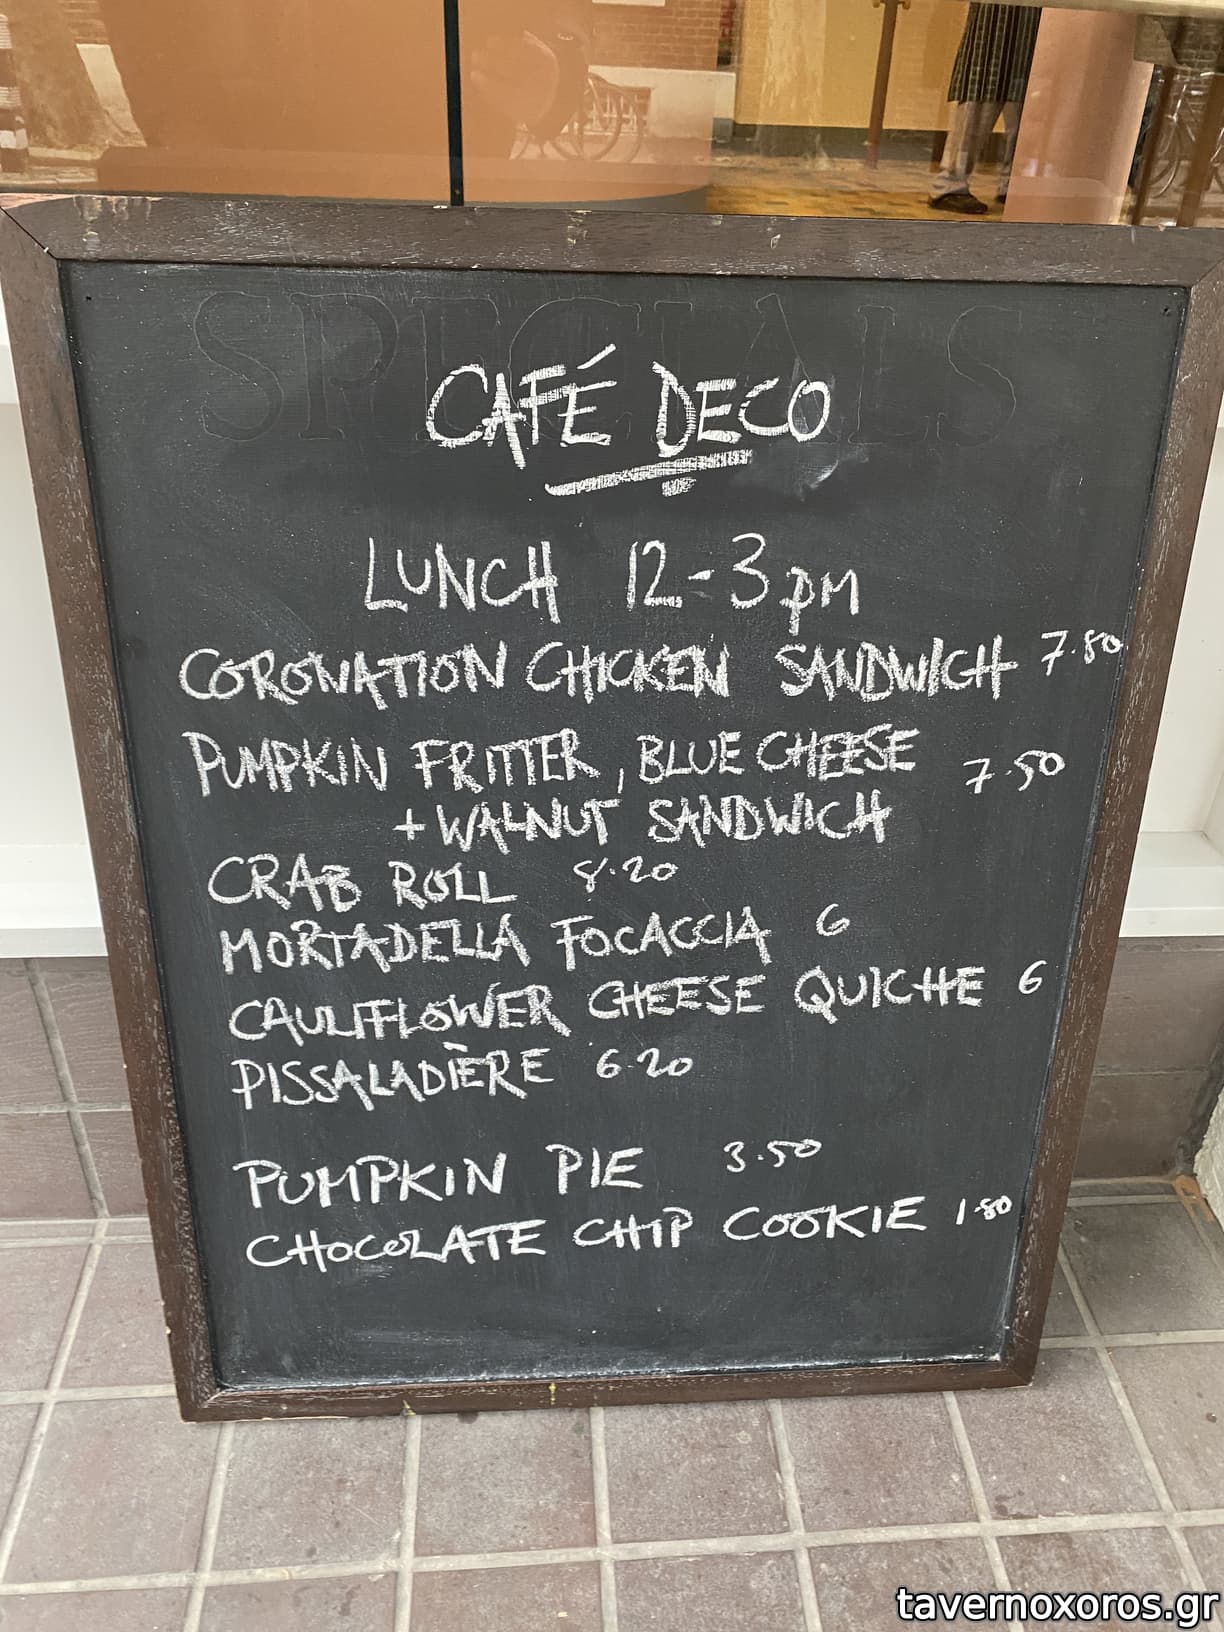 SPECIALS
CAFÉ DECO
LUNCH 12-3pm
CORONATION CHICKEN SANDWICH 7.80
PUMPKIN FRITTER, BLUE CHEESE 7.50
+ WALNUT SANDWICH
CRAB ROLL 8.20
MORTADELLA FOCACCIA 6
CAULIFLOWER CHEESE QUICHE 6
PISSALADIÈRE 6.20
PUMPKIN PIE 3.50
CHOCOLATE CHIP COOKIE 1.80
tavernoxoros.gr